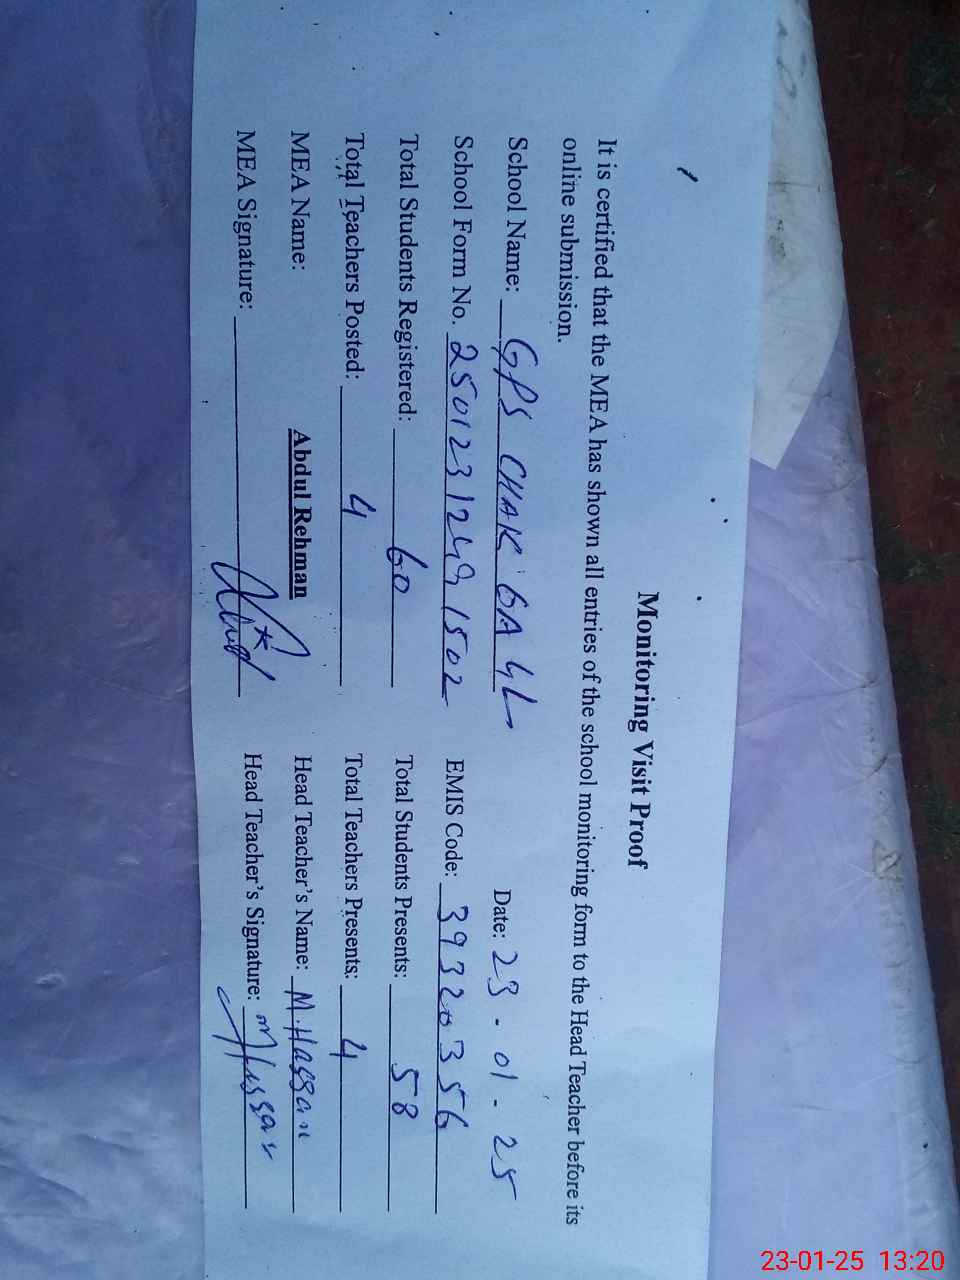 Monitoring Visit Proof
It is certified that the MEA has shown all entries of the school monitoring form to the Head Teacher before its
online submission.
School Name: GPS CHAK 6A 4L Date: 23-01-25
School Form No. 25012312491502 EMIS Code: 39320356
Total Students Registered: 60 Total Students Presents: 58
Total Teachers Posted: 4 Total Teachers Presents: 4
MEA Name: Abdul Rehman Head Teacher's Name: M.Hassan
MEA Signature: Head Teacher's Signature: MHassan
23-01-25 13:20